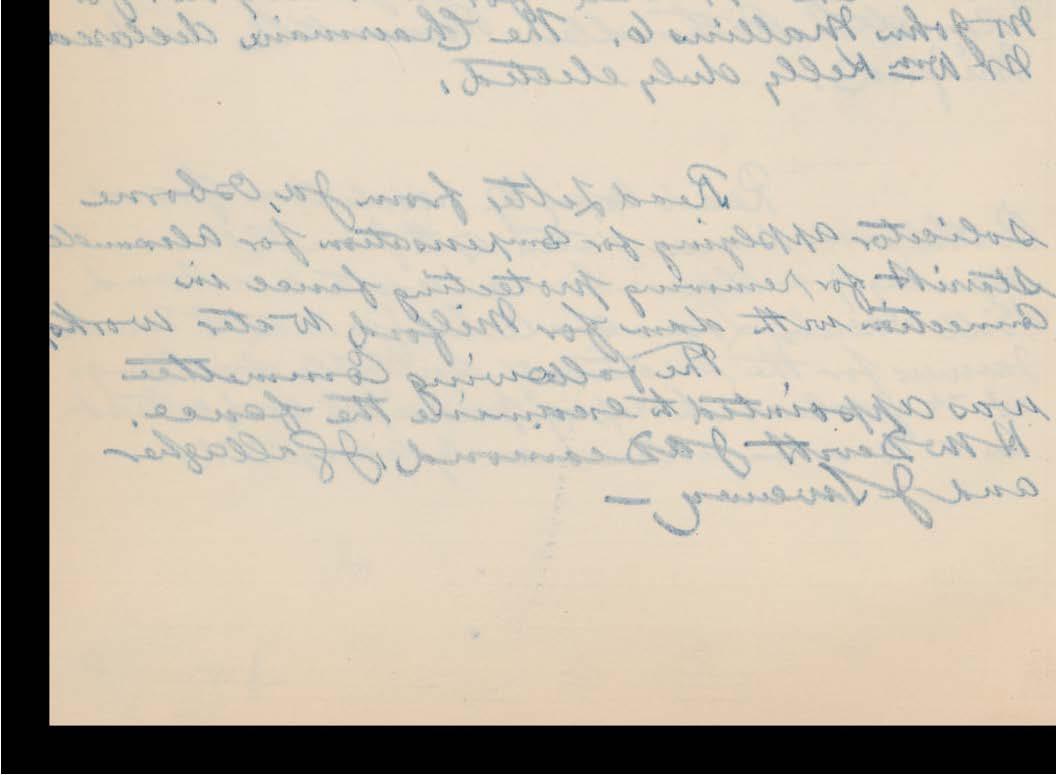 Mr John Mallins 6. The Chairman declared
Mr Wm Kelly duly elected.
Read Letter from Jn, Osborne
Solicitor applying for Compensation for
for removing protecting fence in
Connection with dam for Milford Water Works
The following Committee
was appointed to examine the fence.
H McDevitt J A Deamond, J Gallagher
and J Sweeney —